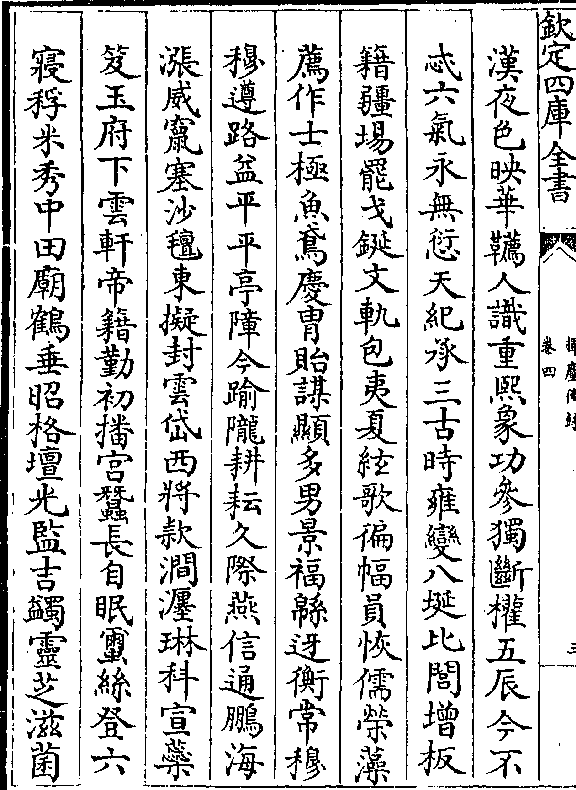 欽定四庫全書
卷四
三
漢夜色映華韉人識重熙象功參獨斷權五辰今不
忒六氣永無愆天紀承三古時雍變八埏比閭增板
籍疆場罷戈鋋文軌包夷夏絃歌徧幅員恢儒榮藻
薦作士極魚鳶慶胄貽謀顯多男景福緜迓衡常穆
穆遵路益平平亭障今踰隴耕耘久際燕信通鵬海
漲威竄塞沙氊東擬封雲岱西將款澗瀍琳科宣蘂
笈玉府下雲軒帝籍勤初播宫蠶長自眠蠒絲登六
寢稃米秀中田廟鶴垂昭格壇光監吉蠲靈芝滋菌